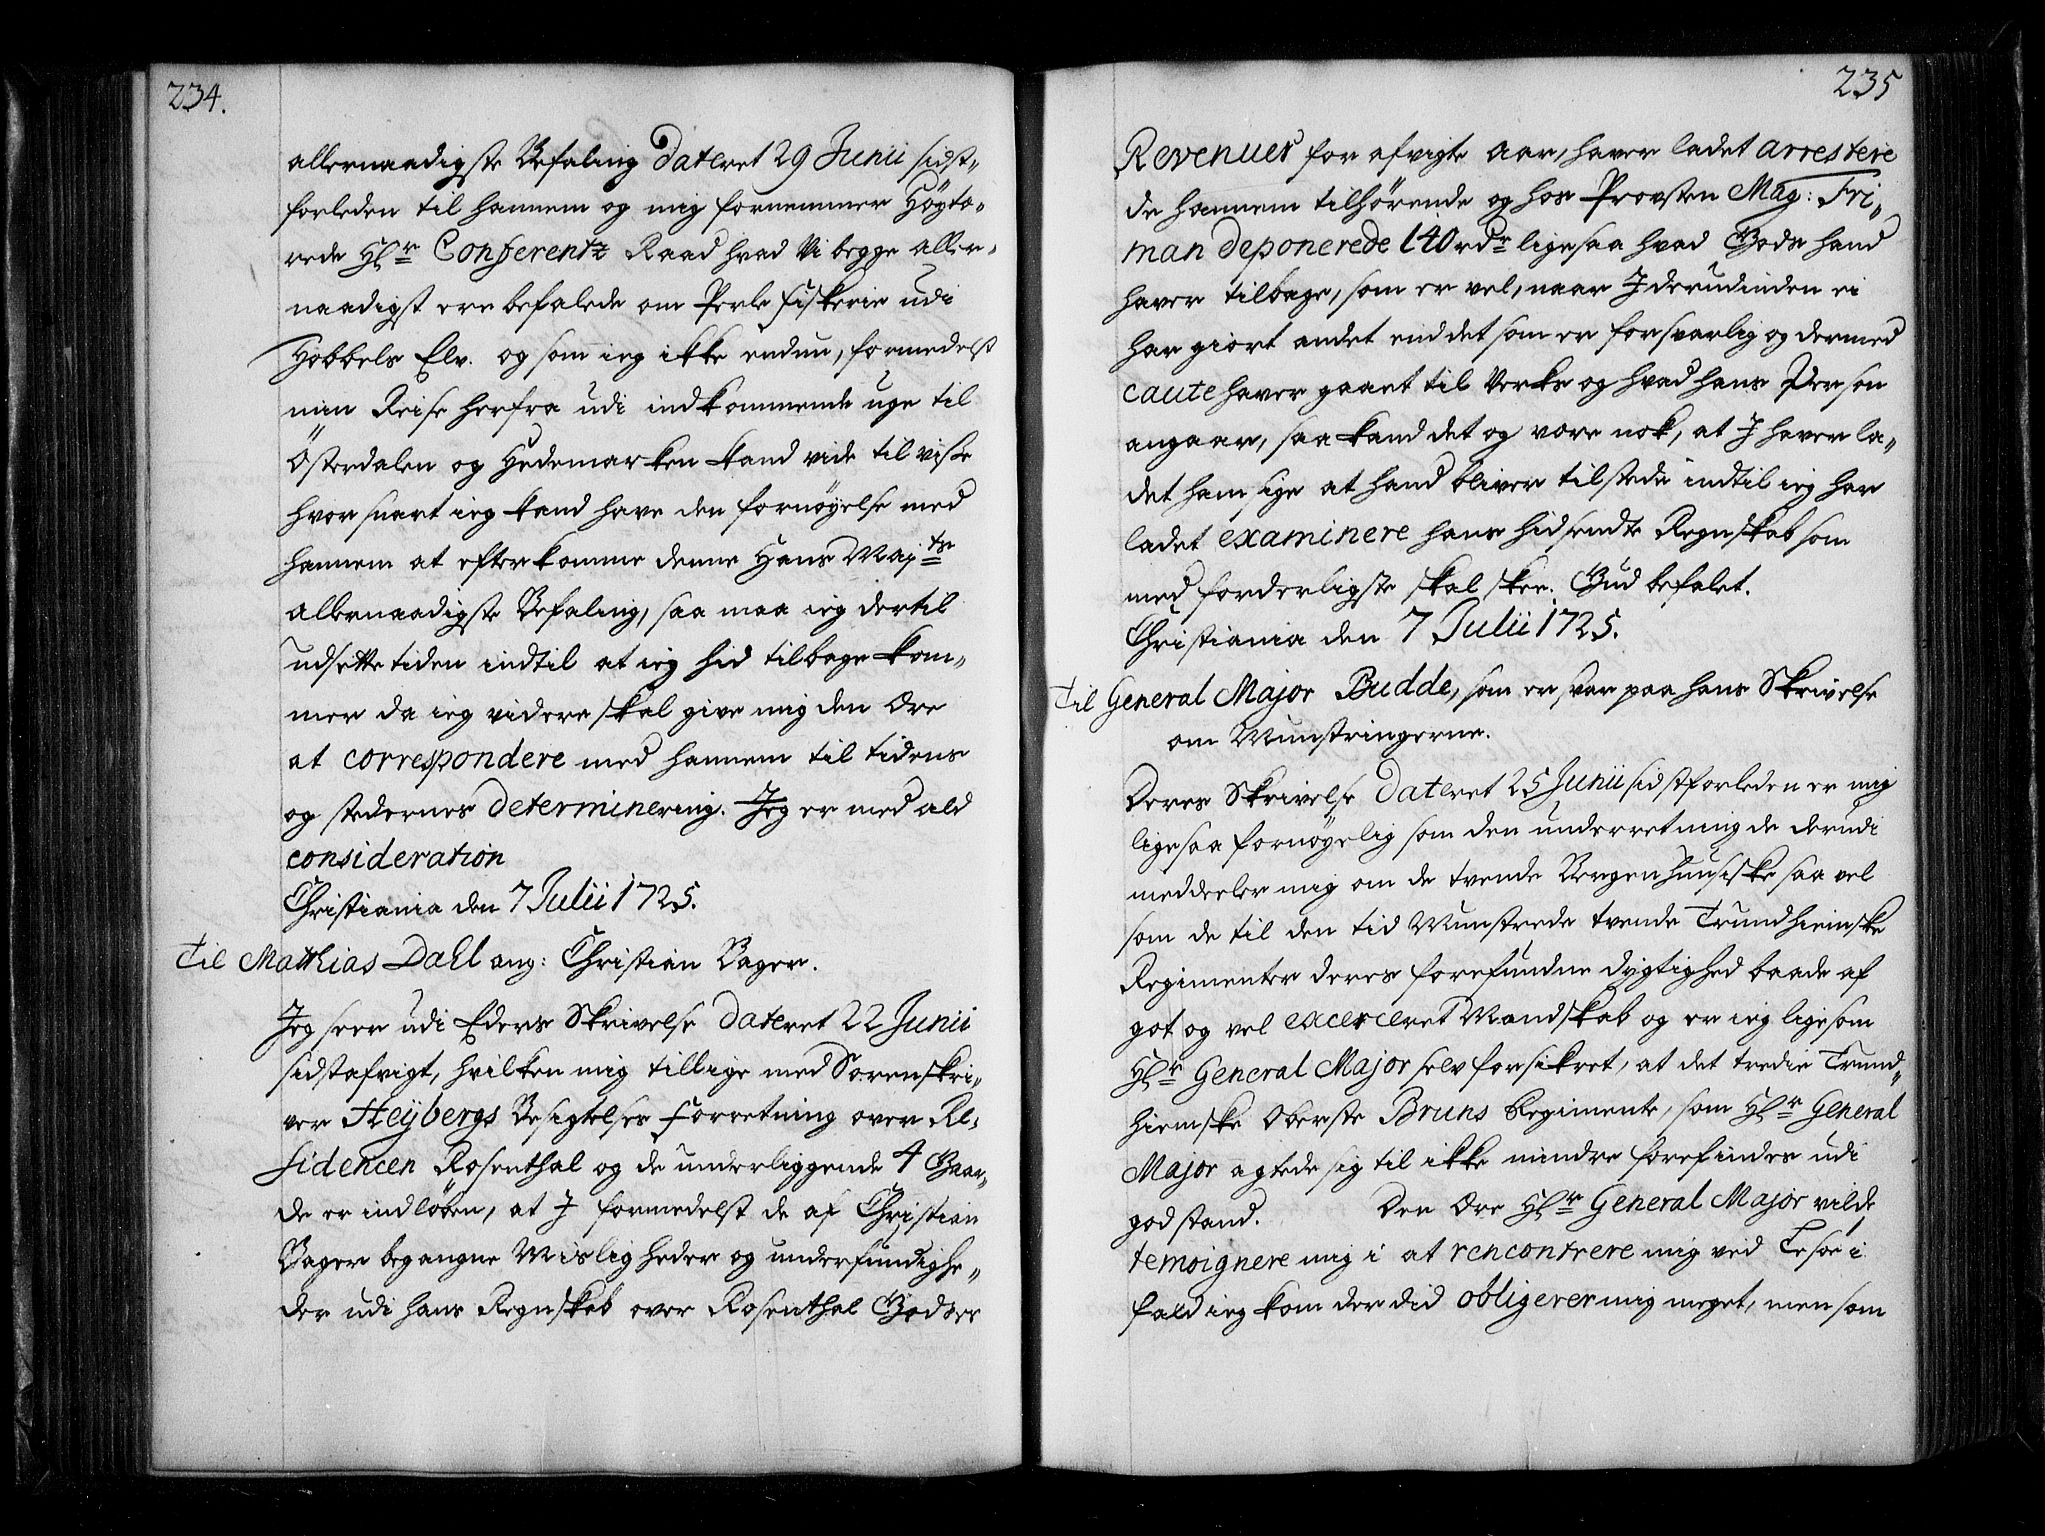 234.
allernaadigste Befaling Dateret 29 Junii sidst„
forleden til hannem og mig fornemmer Høyto„
rede Hr Conferentz Raad hvad Vi begge aller„
naadigst ere befalede om Perle fiskerie udi
Hobbels Elv. og som ieg ikke endnu, formedelst
min Reise herfra udi indkommende uge til
Österdalen og Hedemarken kand vide til visse
hvor snart ieg kand have den fornöyelse med
hannem at efterkomme denne Hans Majts
allernaadigste Befaling, saa maa ieg dertil
udsette tiden indtil at ieg hid tilbage kom„
mer da ieg videre skal give mig den Ære
at correspondere med hannem til tidens
og stedernes determinering. Jeg er med all
consideration
Christiania den 7 Julii 1725.
Til Mathias Dall ang: Christian Bager.
Jeg seer udi Eders Skrivelse Dateret 22 Junii
sidstafvigt, hvilken mig tillige med Sorenskri„
ver Heÿbergs Besigtelses forretning over Re„
sidencen Rosenthal og de underliggende 4 Gaar„
de er indløben, at J formedelst de af Christian
Bager begangne Misligheder og underfundighe„
der udi hans Regnskab over Rosenthal Godses
235
Revenues for afvigte aar, haver ladet arrestere
de hannem tilhørende og hos Provsten Mag: Fri„
man deponerede 140 rdr ligesaa hvad Gods hand
haver tilbage, som er vel, naar J derudinden ei
har giort andet end det som er forsvarlig og dermed
caute haver gaaet til Verks og hvad hans Person
angaar, saa kand det og være nok, at J haver la„
det ham sige at hand bliver tilstede indtil ieg har
ladet examinere hans hidsendte Regnskab som
med forderligste skal skee. Gud befalet.
Christiania den 7 Julii 1725.
Til General Major Budde, som er svar paa hans Skrivelse
om Munstringerne.
Deres Skrivelse Dateret 25 Junii sidstforleden er mig
ligesaa fornöyelig som den underretning de derudi
meddeeler mig om de tvende Bergenhuusiske saa vel
som de til den tid Munstrede tvende Trundhiemske
Regimenter deres forefundne dygtighed baade af
got og vel excerceret Mandskab og er ieg ligesom
Hr General Major selv forsikret, at det tredie Trund„
hiemske Oberste Bruns Regimente, som Hr General
Major agtede sig til ikke mindre forefindes udi
god stand. Den Ære Hr General Major vilde
temoignere mig i at rencontrere mig ved Tesoe i
fald ieg kom der did obligerer mig meget, men som